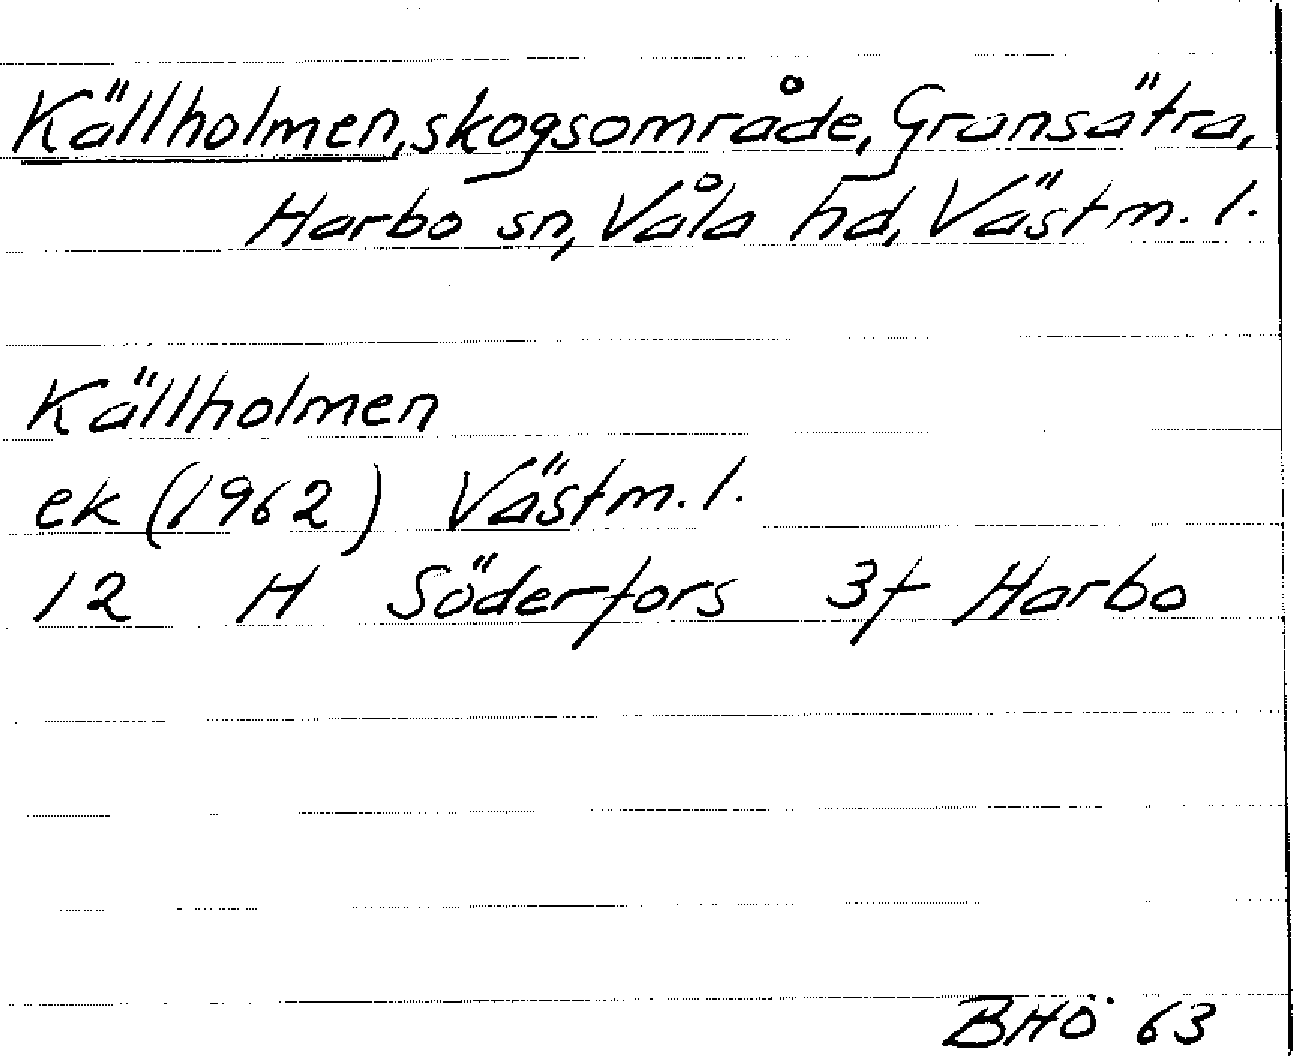 Källholmen, skogsområde, Gransätra,
Harbo sn, Våla hd, Västm. l.
Källholmen
ek (1962) Västm. l.
12 H Söderfors 3f Harbo
BHÖ 63